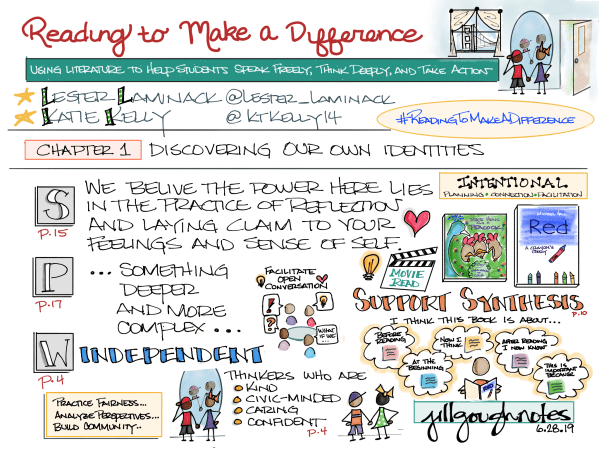 Reading to Make a Difference
USING LITERATURE TO HELP STUDENTS SPEAK FREELY, THINK DEEPLY, AND TAKE ACTION
LESTER LAMINACK @LESTER_LAMINACK
KATIE KELLY @KTKELLY14
#READINGTOMAKEADIFFERENCE
CHAPTER 1 DISCOVERING OUR OWN IDENTITIES
S
P.15
WE BELIVE THE POWER HERE LIES
IN THE PRACTICE OF REFLECTION
AND LAYING CLAIM TO YOUR
FEELINGS AND SENSE OF SELF.
INTENTIONAL
PLANNING + CONNECTION + FACILITATION
PEACOCK
Red
A CRAYON'S
STORY
MOVIE
READ
P
P.17
... SOMETHING
DEEPER
AND MORE
COMPLEX ...
FACILITATE
OPEN
CONVERSATION
!
?
WHAT
IF WE
SUPPORT SYNTHESIS
P.10
I THINK THIS BOOK IS ABOUT...
BEFORE
READING
NOW I
THINK
AFTER READING
I NOW KNOW
AT THE
BEGINNING
THIS IS
IMPORTANT
BECAUSE
W
P.4
INDEPENDENT
THINKERS WHO ARE
KIND
CIVIC-MINDED
CARING
CONFIDENT
P.4
PRACTICE FAIRNESS...
ANALYZE PERSPECTIVES...
BUILD COMMUNITY..
jillgoughnotes
6.28.19